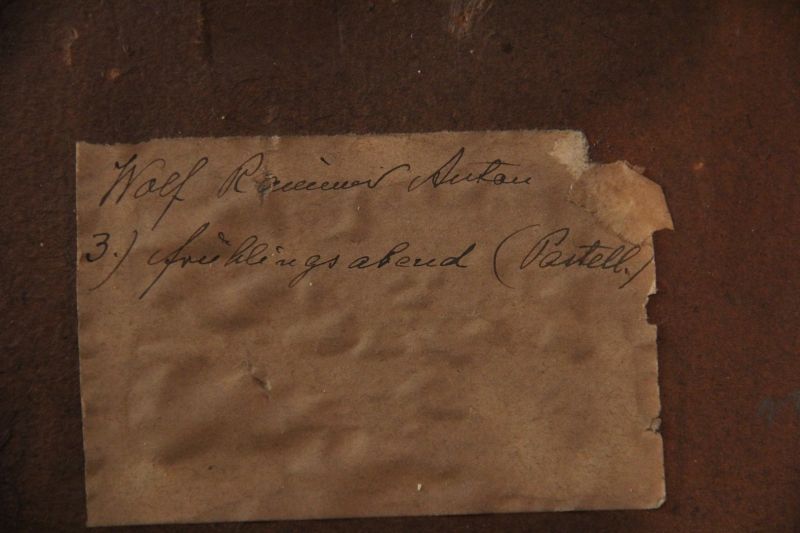 Wolf Anton
3.) Frühlingsabend (Pastell.)